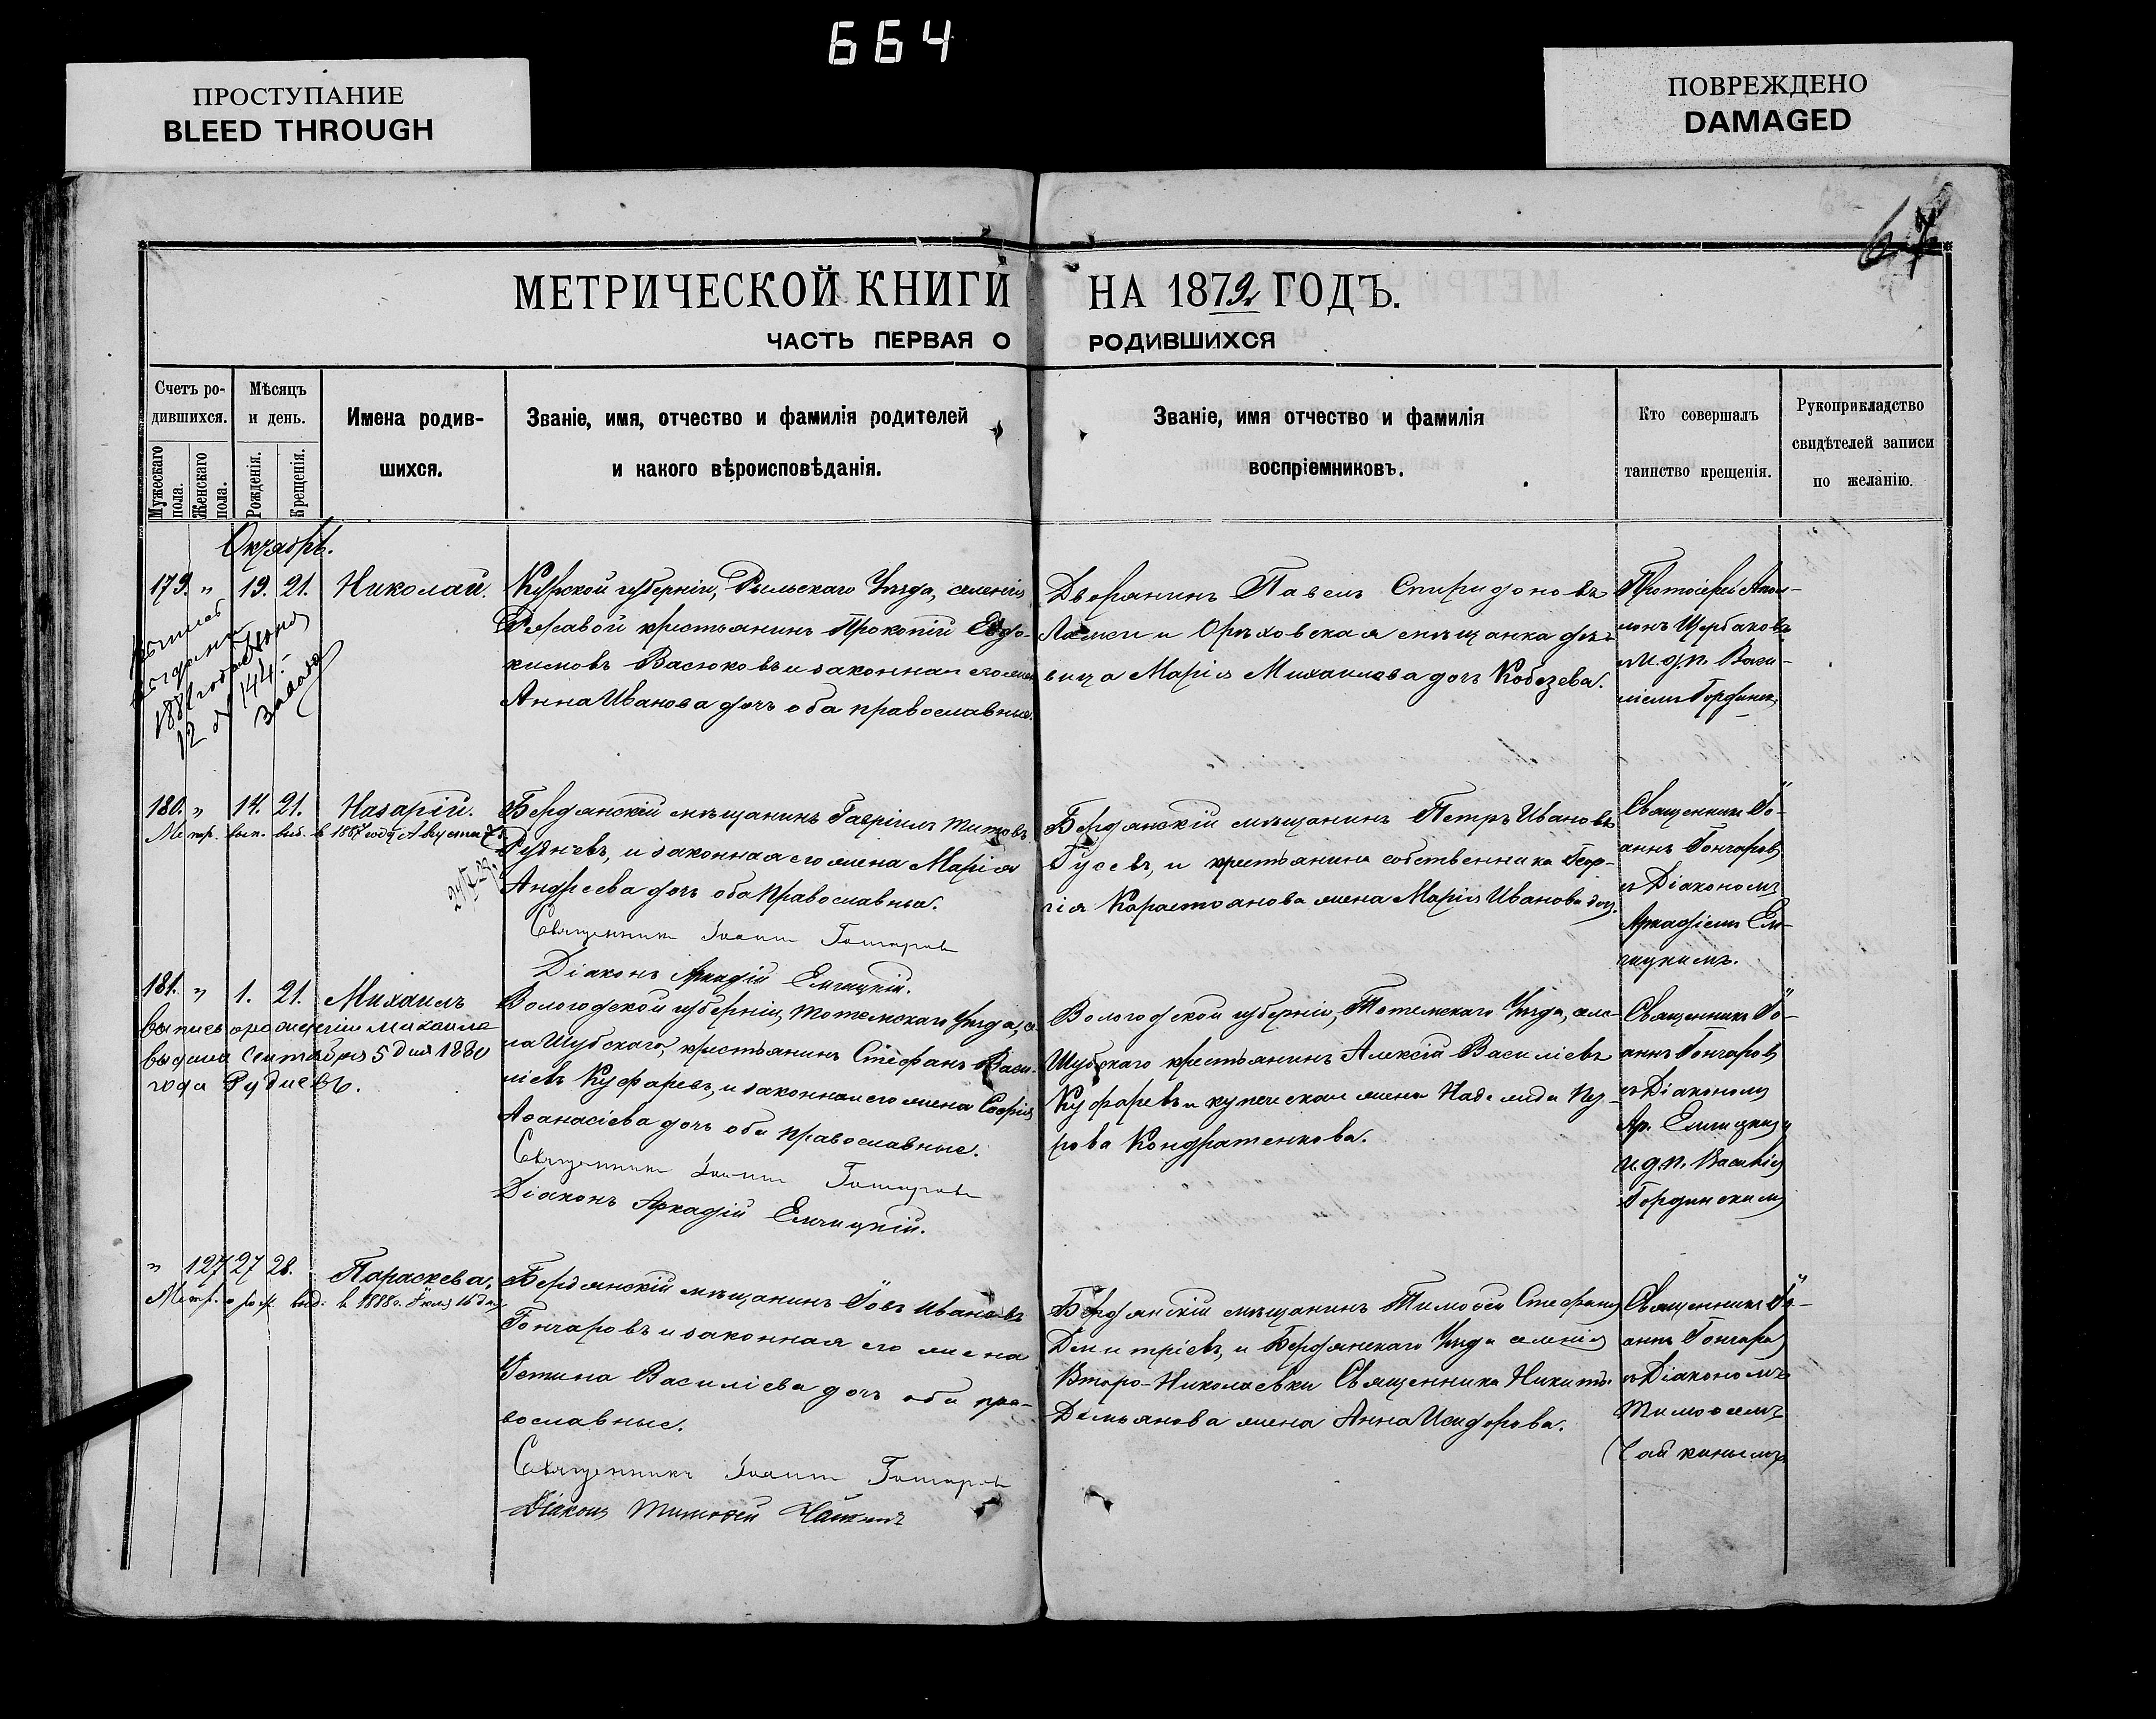 664
ПРОСТУПАНИЕ
BLEED THROUGH
ПОВРЕЖДЕНО
DAMAGED
МЕТРИЧЕСКОЙ КНИГИ НА 1872 ГОДЪ.
ЧАСТЬ ПЕРВАЯ О РОДИВШИХСЯ
Счетъ ро-
дившихся.
Мужескаго пола.
Женскаго пола.
Мѣсяцъ
и день.
Рожденія.
Крещенія.
Имена родив-
шихся.
Званіе, имя, отчество и фамилія родителей
и какого вѣроисповѣданія.
Званіе, имя отчество и фамилія
воспріемниковъ.
Кто совершалъ
таинство крещенія.
Рукоприкладство
свидѣтелей записи
по желанію.
Октябрь.
179. " 19. 21. Николай.
1881 года
12 № 144.
Курской губерніи, Рыльскаго Уѣзда, селенія
крестьянинъ Прокопій Евдо-
кимовъ Васюковъ и законная его жена
Анна Иванова дочь оба православные.
Дворянинъ Павелъ Спиридоновъ
и Орѣховская мѣщанка дѣ-
вица Марія Михаилова дочь Кобезева.
Протоіерей Апол-
лонъ Щербаковъ
и. д. п. Васи-
ліемъ
180. " 14. 21. Назарій.
Метр. вып. выд. в 1887 году Августа 7
Бердянскій мѣщанинъ Гавріилъ Титовъ
Рудневъ, и законная его жена Марія
Андреева дочь оба Православные.
Священникъ Іоаннъ Гончаровъ
Діаконъ Аркадій Емчицкій.
Бердянскій мѣщанинъ Петръ Ивановъ
Гусевъ, и крестьянина собственника Геор-
гія Карастоянова жена Марія Иванова дочь.
Священникъ Іо-
аннъ Гончаровъ
съ Діакономъ
Аркадіемъ Ем-
чицкимъ.
181. " 1. 21. Михаилъ
выпись о рожденіи Михаила
выдана Сентября 5 дня 1880
года Рудневъ.
Вологодской губерніи, Тотемскаго Уѣзда, се-
ла Шубскаго, крестьянинъ Стефанъ Васи-
ліевъ Куфаревъ, и законная его жена Софія
Аѳанасіева дочь оба православные.
Священникъ Іоаннъ Гончаровъ
Діаконъ Аркадій Емчицкій.
Вологодской губерніи, Тотемскаго Уѣзда, села
Шубскаго крестьянинъ Алексій Василіевъ
Куфаревъ и купеческая жена Надежда Ки-
рова Кондратенкова.
Священникъ Іо-
аннъ Гончаровъ
съ Діакономъ
Ар. Емчицкимъ
и. д. п. Василій
Гординскимъ
" 127 27 28. Параскева.
Метр. о рож. выд. в 1888 г. Іюля 16 дня
Бердянскій мѣщанинъ Іовъ Ивановъ
Гончаровъ и законная его жена
Устина Василіева дочь оба пра-
вославные.
Священникъ Іоаннъ Гончаровъ
Діаконъ Тимоѳей Чайкинъ
Бердянскій мѣщанинъ Тимоѳей Стефановъ
Димитріевъ, и Бердянскаго Уѣзда селенія
Второ-Николаевки Священника Никиты
Демьянова жена Анна Исидорова.
Священникъ Іо-
аннъ Гончаровъ
съ Діакономъ
Тимоѳеемъ
Чайкинымъ